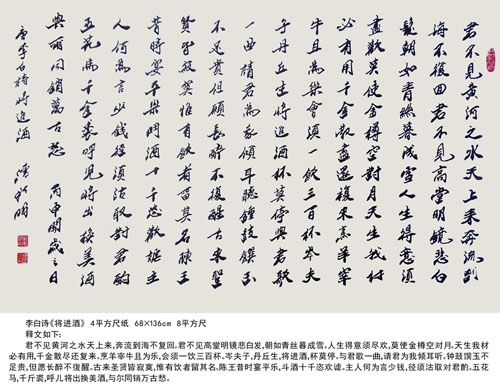 君不見黄河之水天上来奔流到
海不復回君不見高堂明鏡悲白
髮朝如青絲暮成雪人生得意須
盡歡莫使金樽空對月天生我材
必有用千金散盡還復来烹羊宰
牛且為樂會須一飲三百杯岑夫
子丹丘生將進酒杯莫停與君歌
一曲請君為我傾耳聽鐘鼓饌玉
不足貴但願長醉不復醒古来聖
賢皆寂寞惟有飲者留其名陳王
昔時宴平樂鬥酒十千恣歡謔主
人何為言少錢徑須沽取對君酌
五花馬千金裘呼兒將出換美酒
與爾同銷萬古愁 丙申
唐李白詩將進酒
李白诗《将进酒》 4平方尺纸 68×136cm 8平方尺
释文如下：
君不见黄河之水天上来，奔流到海不复回。君不见高堂明镜悲白发，朝如青丝暮成雪。人生得意须尽欢，莫使金樽空对月。天生我材
必有用，千金散尽还复来。烹羊宰牛且为乐，会须一饮三百杯。岑夫子，丹丘生，将进酒，杯莫停。与君歌一曲，请君为我倾耳听。钟鼓馔玉不
足贵，但愿长醉不復醒。古来圣贤皆寂寞，惟有饮者留其名。陈王昔时宴平乐，斗酒十千恣欢谑。主人何为言少钱，径须沽取对君酌。五花
马，千斤裘，呼儿将出换美酒，与尔同销万古愁。